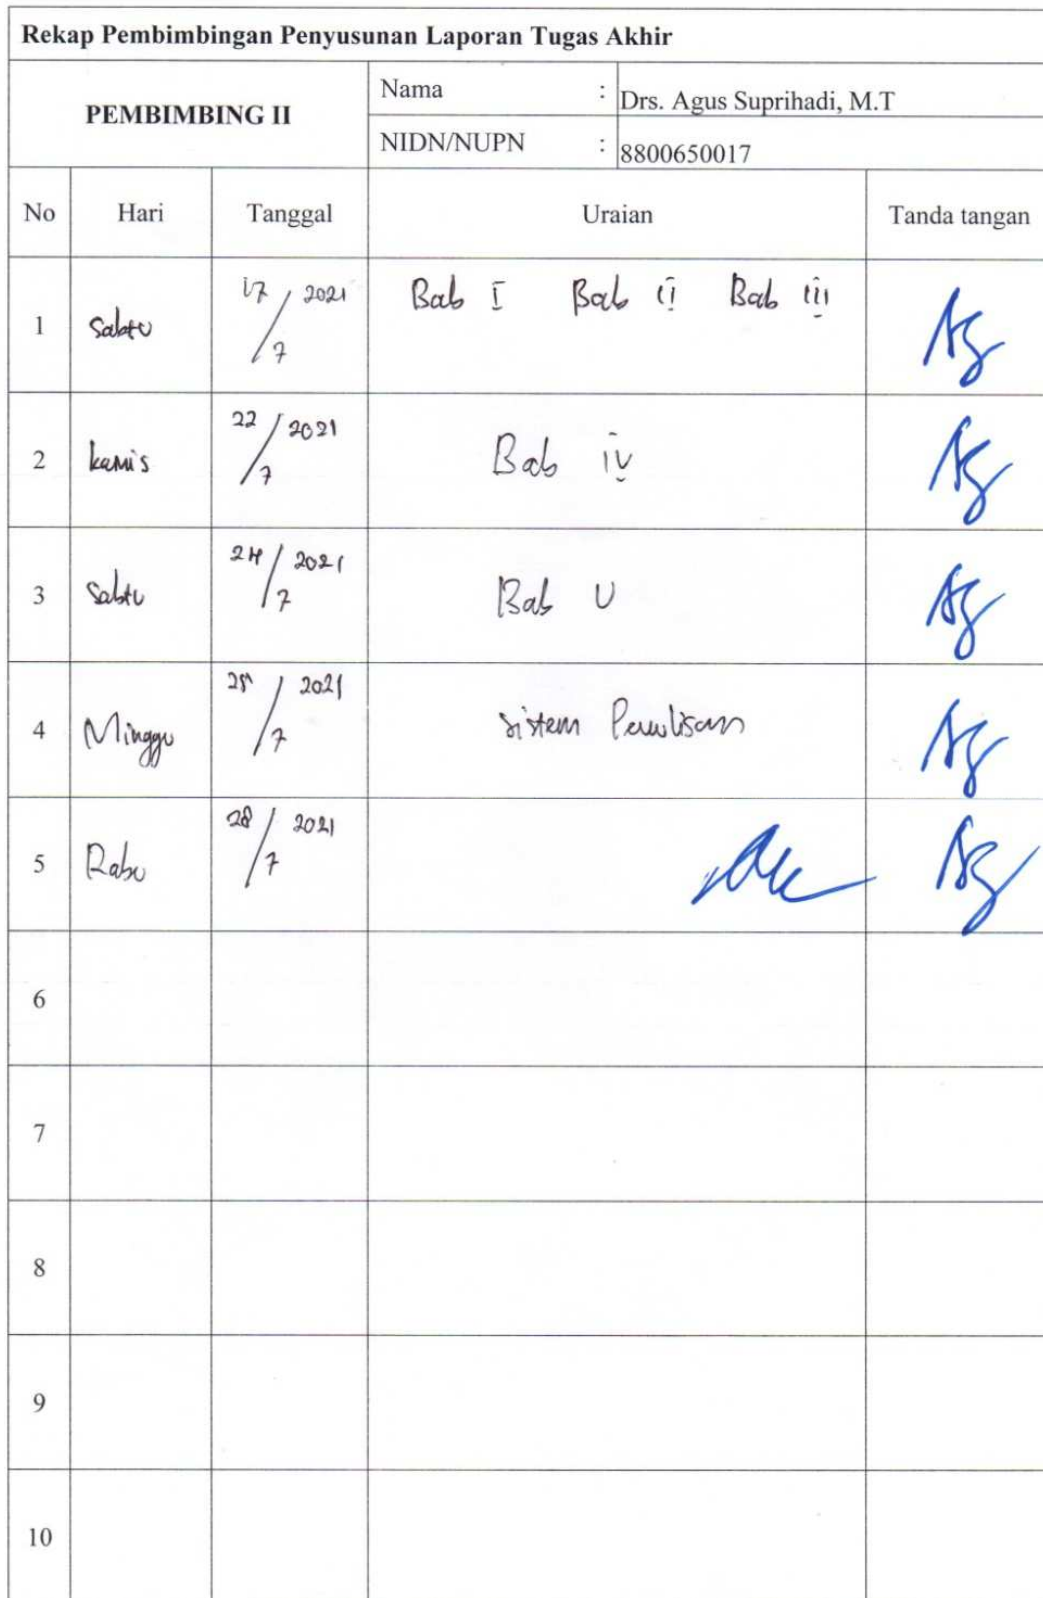 Rekap Pembimbingan Penyusunan Laporan Tugas Akhir
PEMBIMBING II
Nama : Drs. Agus Suprihadi, M.T
NIDN/NUPN : 8800650017
No Hari Tanggal Uraian Tanda tangan
1 Sabtu 17/7 2021 Bab I Bab II Bab III
2 kamis 22/7 2021 Bab IV
3 Sabtu 24/7 2021 Bab V
4 Minggu 25/7 2021 Sistem Penulisan
5 Rabu 28/7 2021
6
7
8
9
10